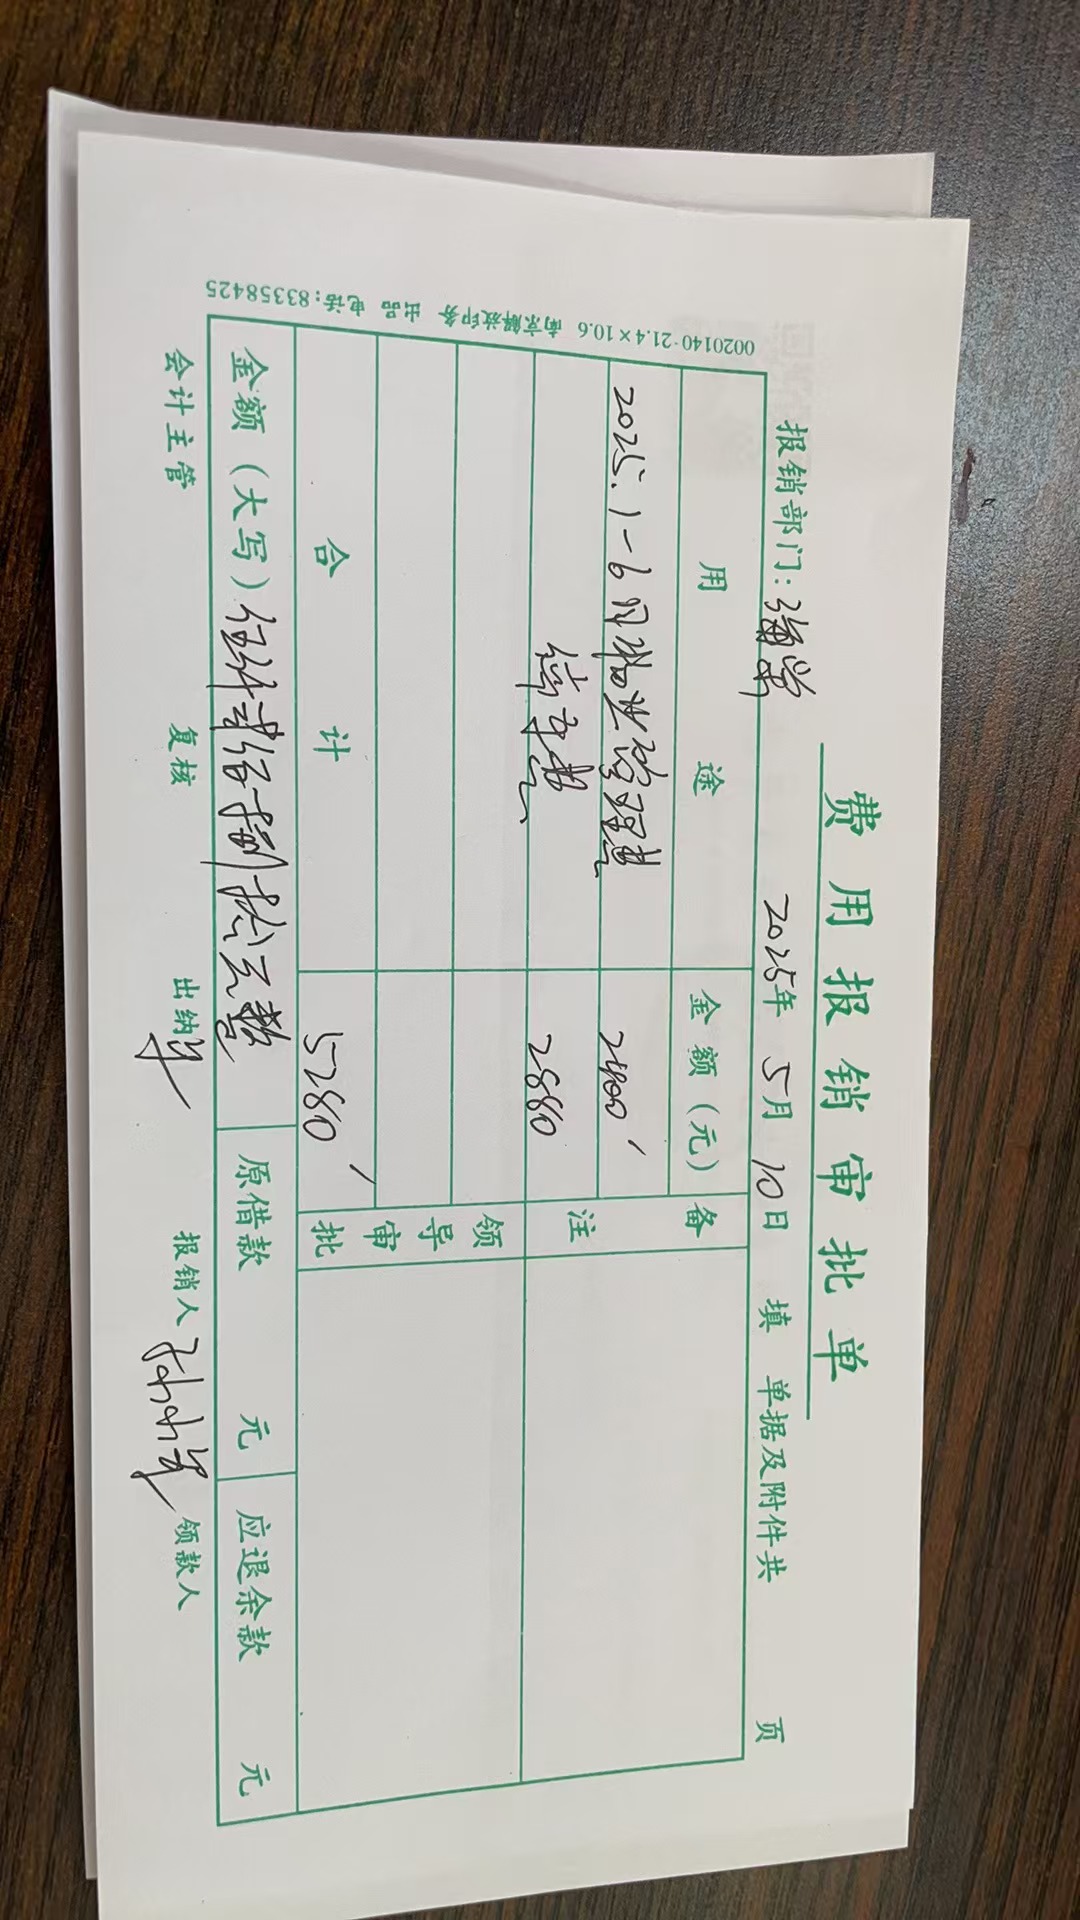 费用报销审批单
报销部门：海荣 2025年 5月 10日 填 单据及附件共 页
用 途 金额（元） 备注
2025.1-6月物业管理费 2400
停车费 2880
领导审批
合 计 5280
金额（大写）伍仟贰佰捌拾元整 原借款 元 应退余款 元
会计主管 复核 出纳 报销人 领款人
0020140-21.4×10.6 南京解放印务 出品 电话：83358425